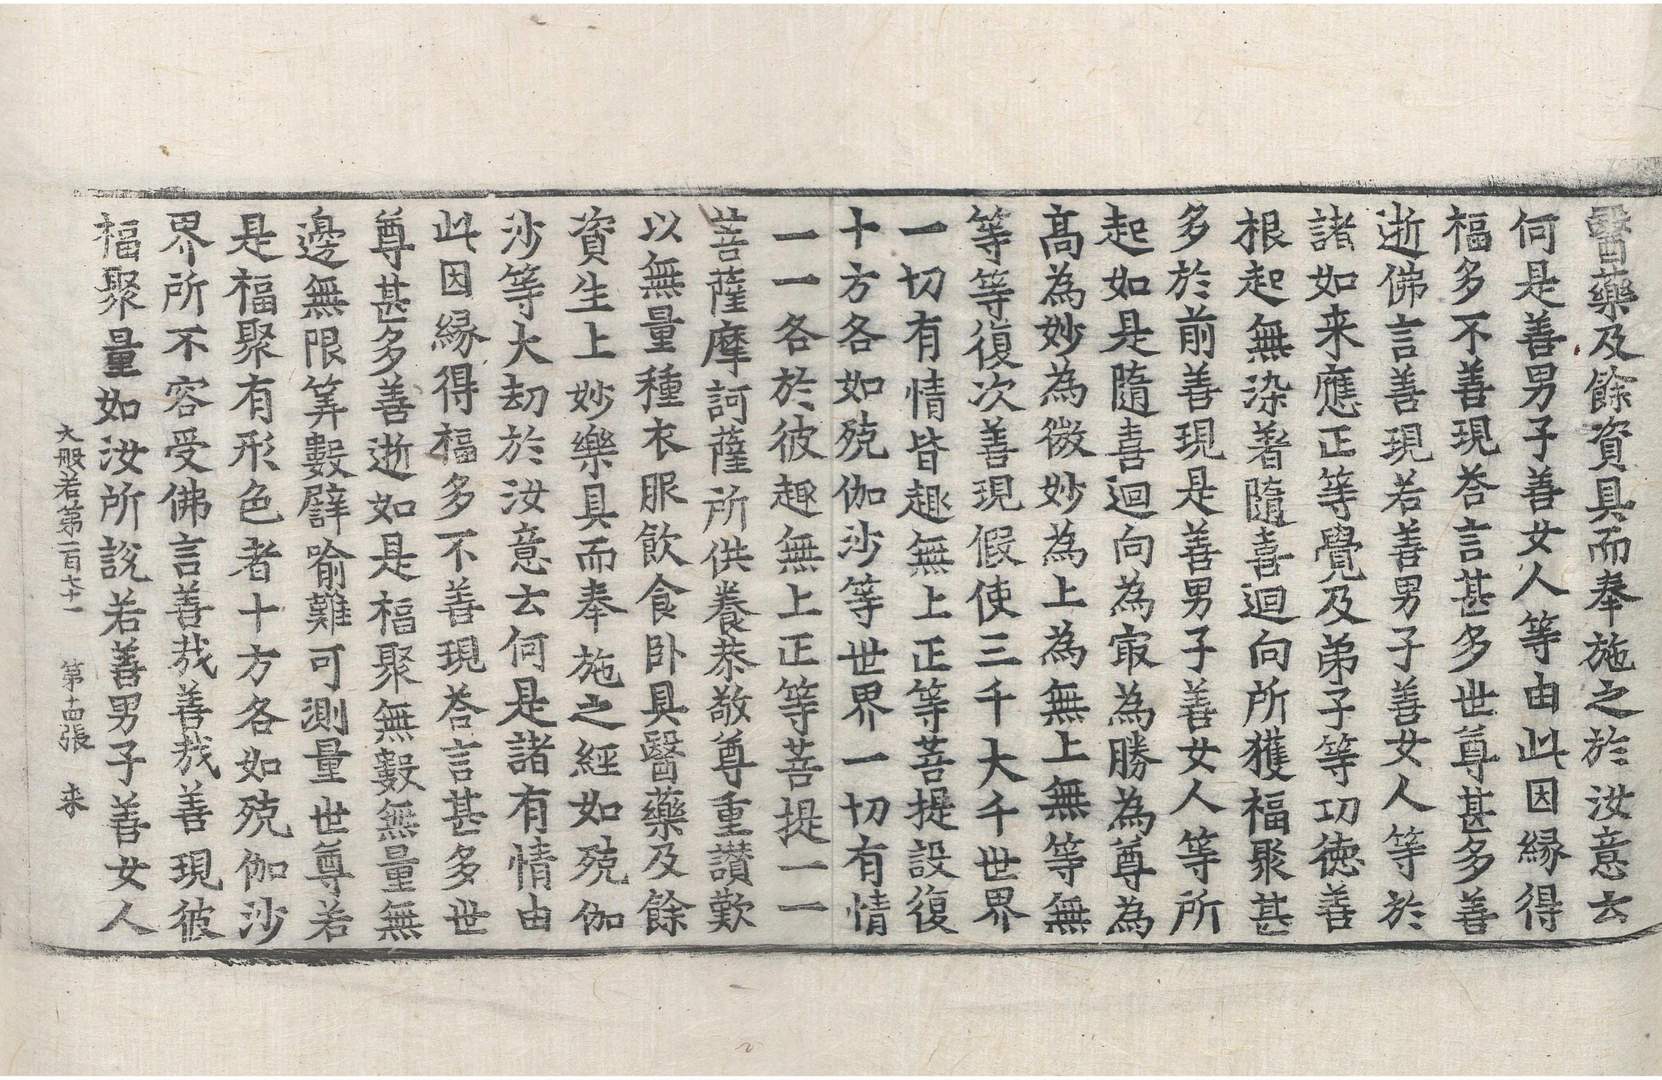 醫藥及餘資具而奉施之於汝意云
何是善男子善女人等由此因縁得
福多不善現荅言甚多世尊甚多善
逝佛言善現若善男子善女人等於
諸如来應正等覺及弟子等功徳善
根起無染著隨喜迴向所獲福聚甚
多於前善現是善男子善女人等所
起如是隨喜迴向為㝡為勝為尊為
髙為妙為微妙為上為無上無等無
等等復次善現假使三千大千世界
一切有情皆趣無上正等菩提設復
十方各如殑伽沙等世界一切有情
一一各於彼趣無上正等菩提一一
菩薩摩訶薩所供養恭敬尊重讃歎
以無量種衣服飲食卧具醫藥及餘
資生上妙樂具而奉施之經如殑伽
沙等大劫於汝意云何是諸有情由
此因縁得福多不善現荅言甚多世
尊甚多善逝如是福聚無數無量無
邊無限筭數譬喻難可測量世尊若
是福聚有形色者十方各如殑伽沙
界所不容受佛言善哉善哉善現彼
福聚量如汝所說若善男子善女人
大般若第一百六十一　第十四張　来